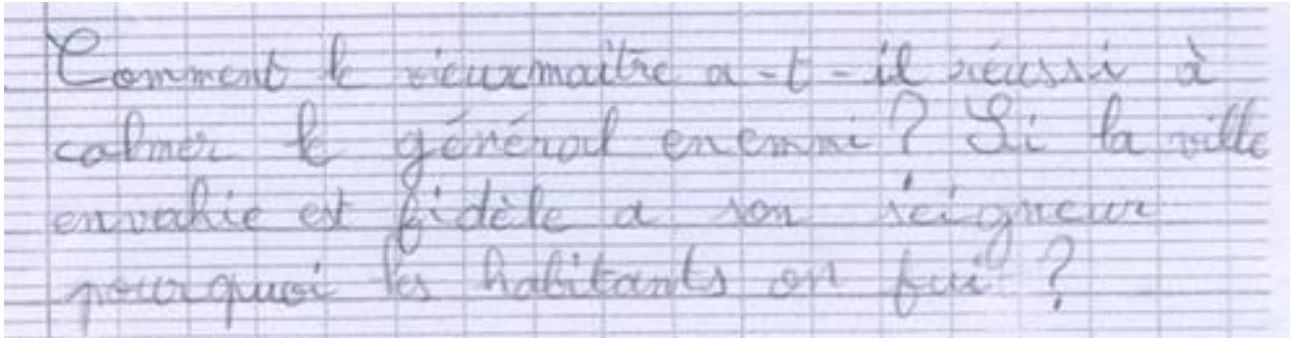 Comment le vieuxmaître a-t-il réussi à
calmer le général enemmi ? Si la ville
envahie est fidèle a son seigneur
pourquoi les habitants on fui ?